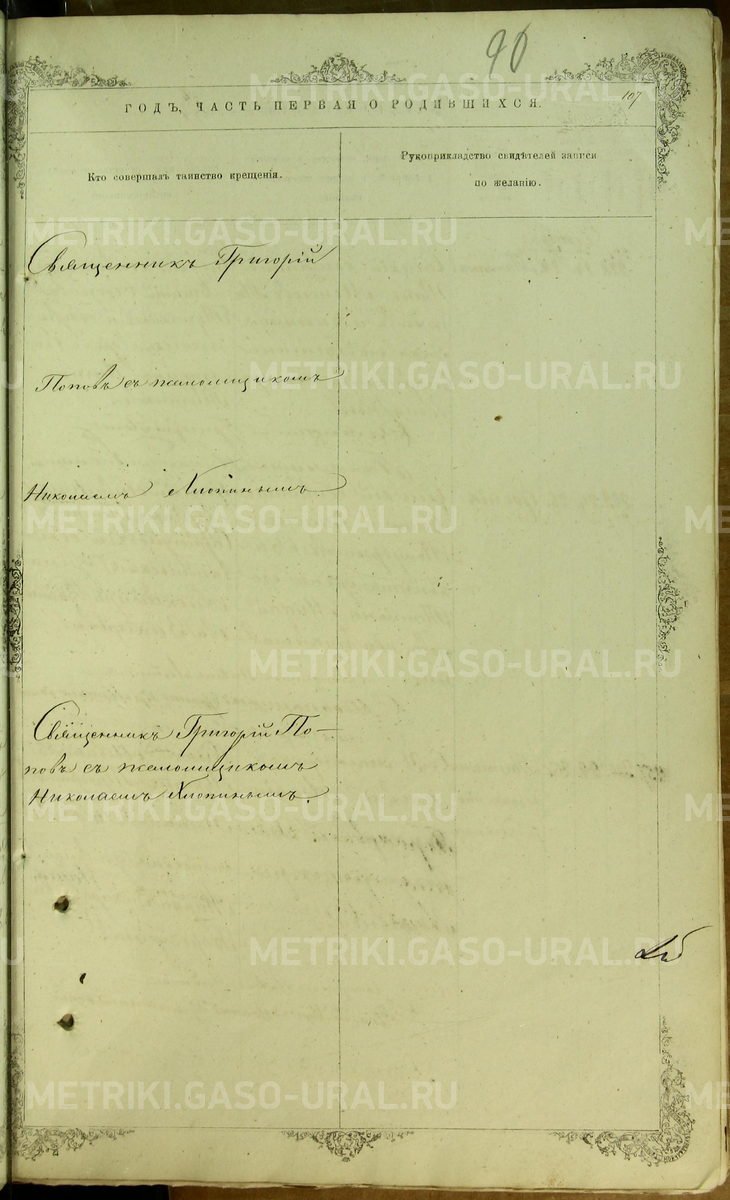 90
107
ГОДЪ, ЧАСТЬ ПЕРВАЯ О РОДИВШИХСЯ.
Кто совершалъ таинство крещенія.
Рукоприкладство свидѣтелей записи
по желанію.
Священникъ Григорій
Поповъ съ псаломщикомъ
Николаемъ Хлопинымъ.
Священникъ Григорій По-
повъ съ псаломщикомъ
Николаемъ Хлопинымъ.
METRIKI.GASO-URAL.RU